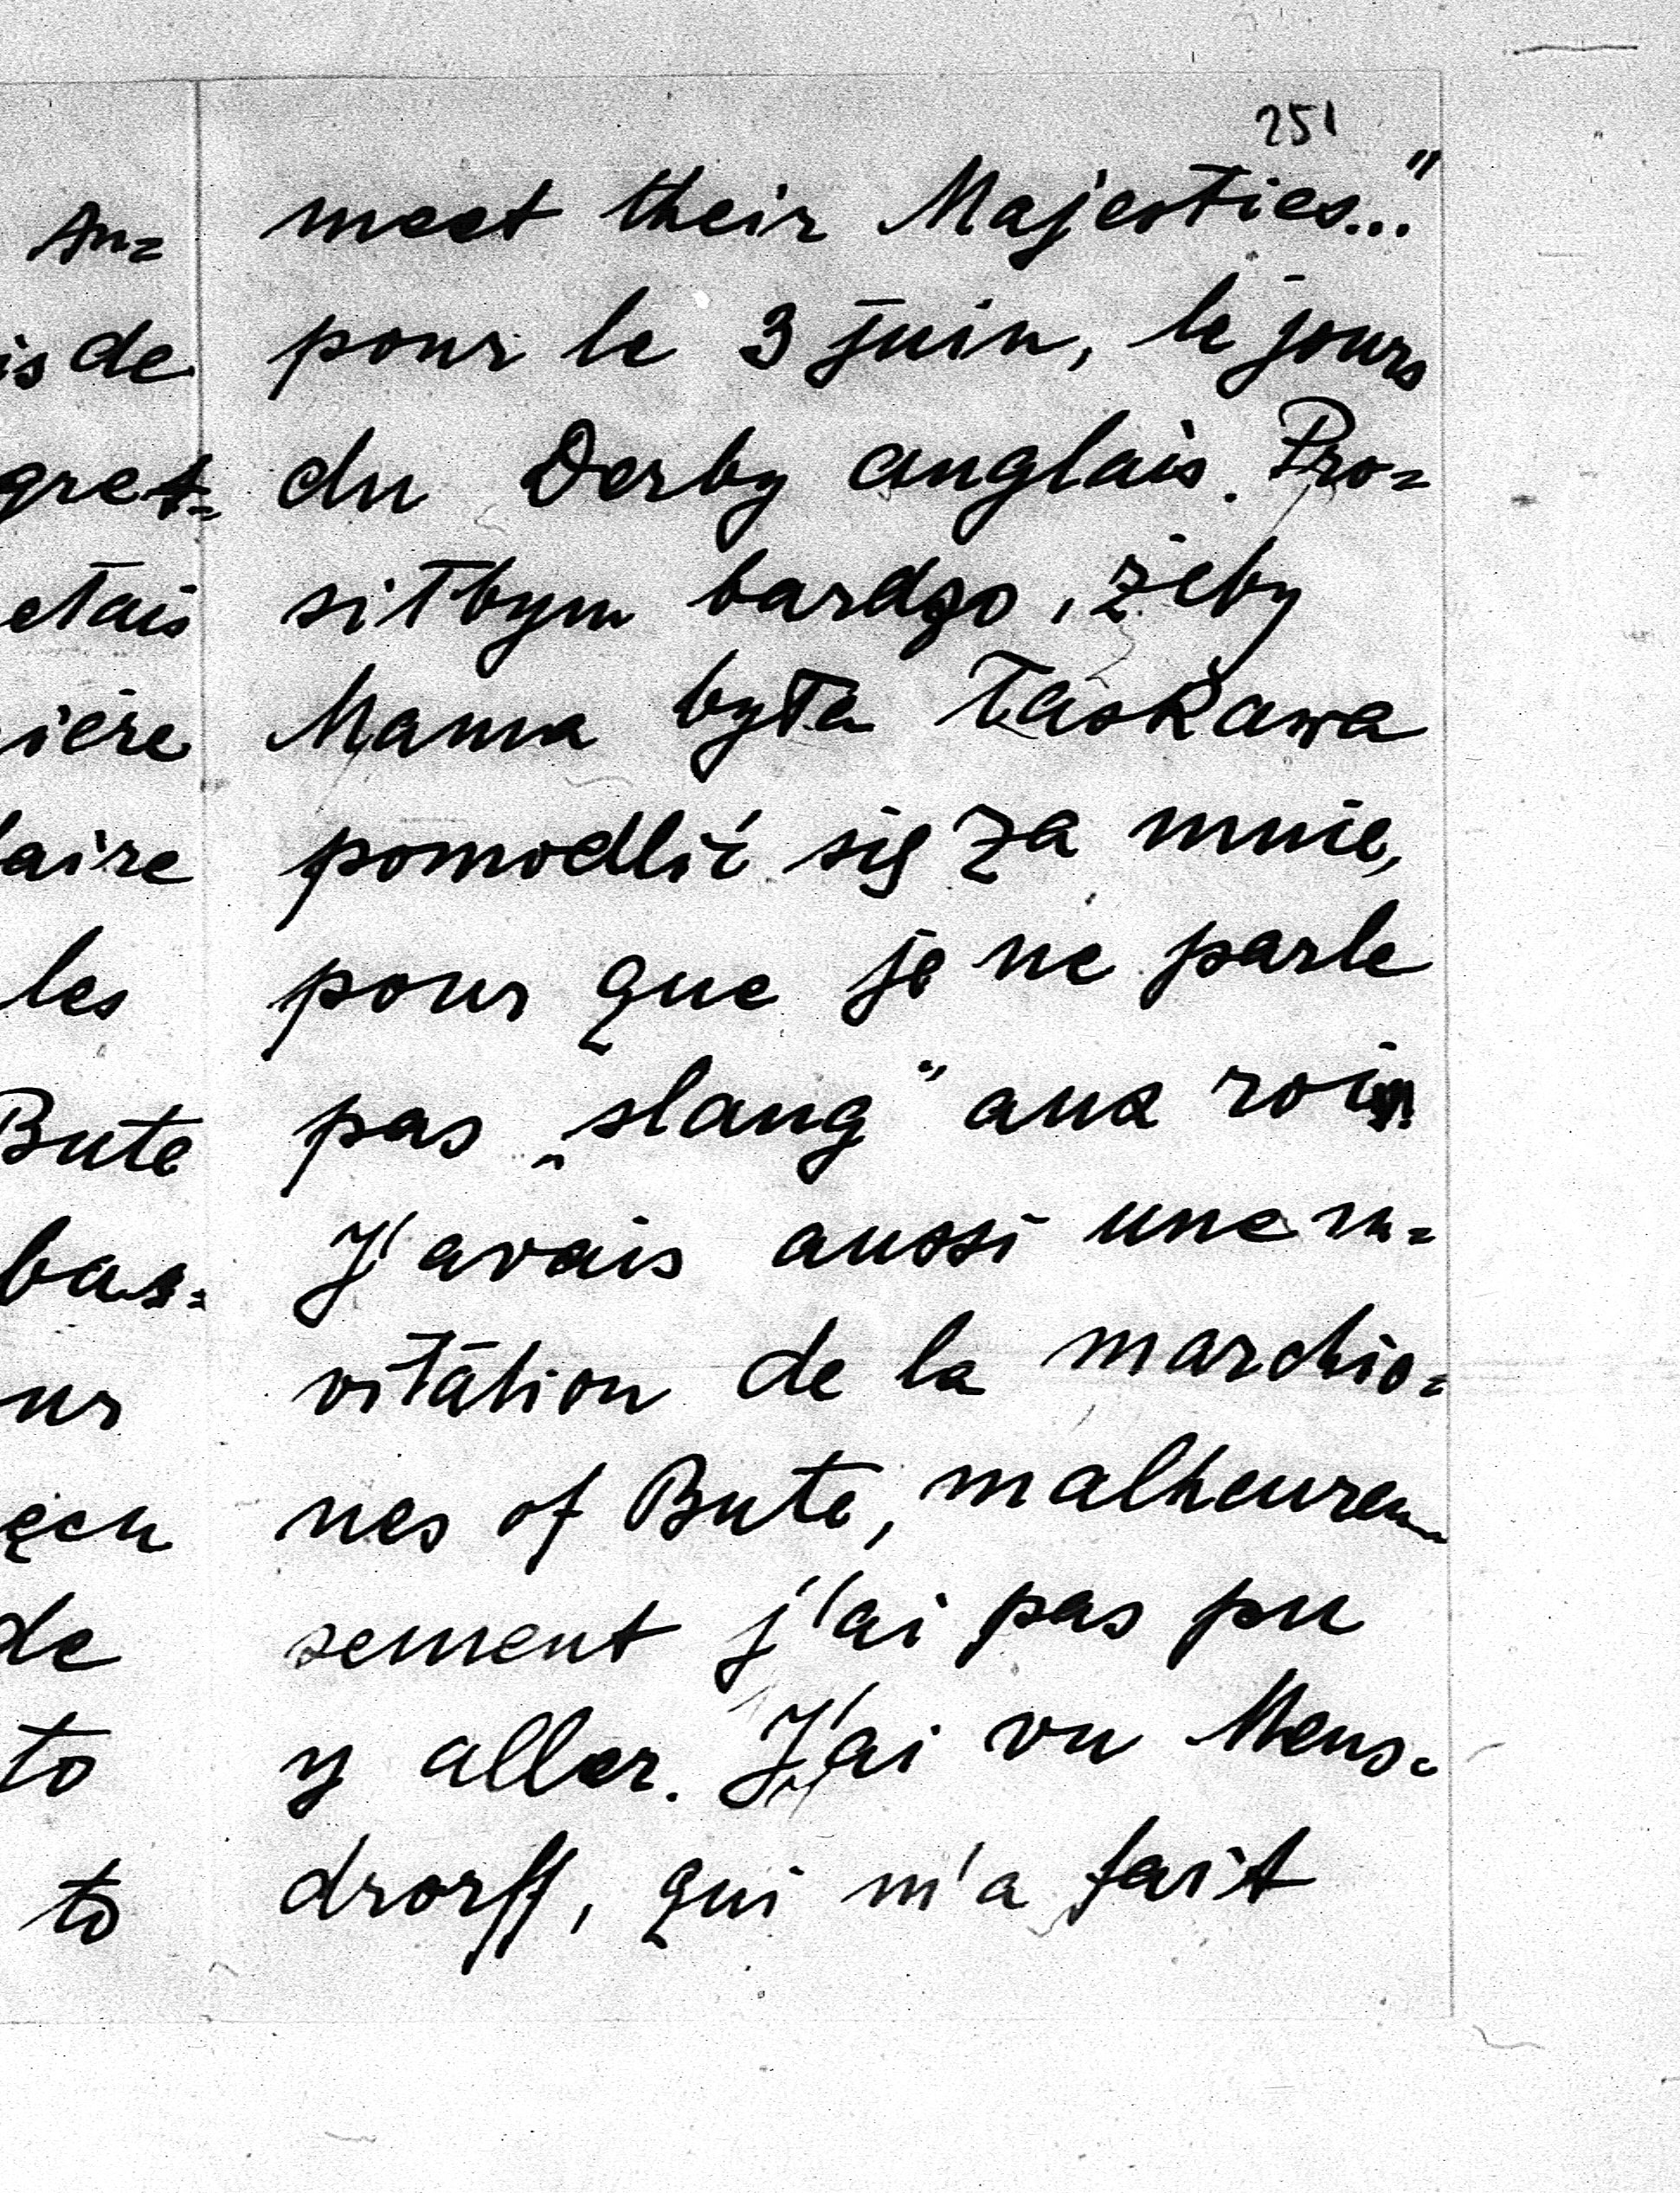 251
meet their Majesties..."
pour le 3 juin, le jours
du Derby anglais. Pro=
siłbym bardzo, żeby
Mama była łaskawa
pomodlić się za mnie,
pour que je ne parle
pas „slang" aux rois
J'avais aussi une in=
vitation de la marchio=
nes of Bute, malheureu
sement j'ai pas pu
y aller. J'ai vu Mens=
drorff, qui m'a fait
An=
is de
gret=
etais
ière
laire
les
Bute
bas=
ur
ęcu
de
to
to